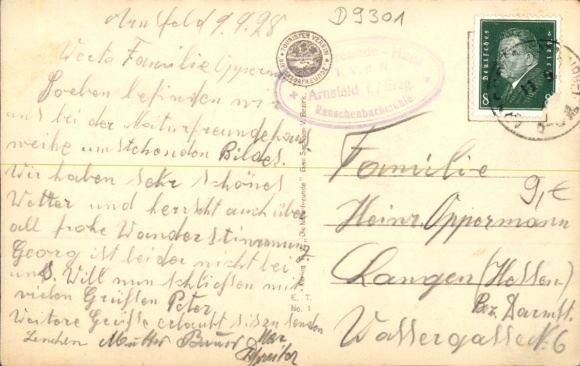 Arnsfeld 9.9.28
D9301
Werte Familie Opperm
Soeben befinden wir
uns bei der Naturfreundehaus
weihe umstehenden Bildes.
Wir haben sehr schönes
Wetter und herrscht auch über
all frohe Wanderstimmung
Georg ist leider nicht bei
uns. Will nun schließen mit
vielen Grüßen Peter
Weitere Grüße erlaubt sich zu senden
Lenchen Mutter
TOURISTEN VEREIN
T. V. d. N.
Arnsfeld i./Erzg.
Rauschenbachmühle
Deutsches Reich
8 8
Familie
9,€
Heinr. Oppermann
Langen (Hessen)
Bez. Darmst.
Wassergasse No. 6
E. T.
No. 1